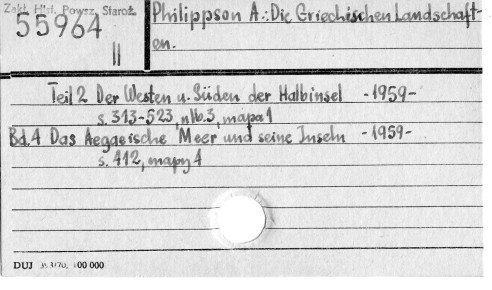 Zakł. Hist. Powsz. Staroż.
55964
II
Philippson A.: Die Griechischen Landschaft-
en.
Teil 2 Der Westen u. Süden der Halbinsel -1959-
s. 313-523, nlb. 3, mapa 1
Bd. 4 Das Aegaeische Meer und seine Inseln -1959-
s. 412, mapy 4
DUJ 70, 100 000